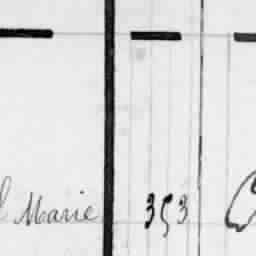 Marie 353